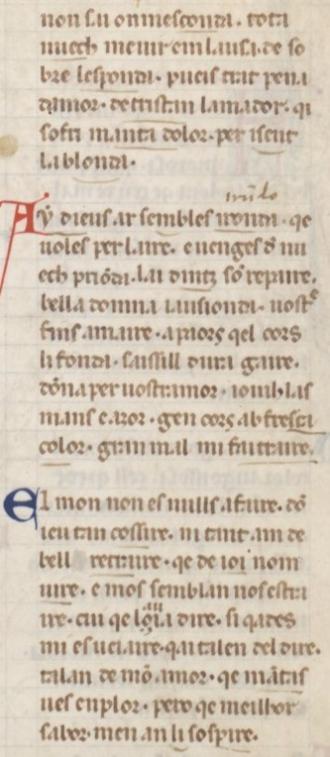 non sui onmesconda. tota
nuech meuir em lansi. de so
bre lesponda. pueis trat pena
damor. de tristan lamador. qi
sofri manta dolor. per iseut
la blonda.
Ay dieus ar sembles ironda. qe
uoles per laire. e uenges de nu
ech prionda. lai dintz son repaire.
bella domna iausionda. uostre
fins amaire. a paors qel cors
li fonda. saissill dura gaire.
dona per uostr amor. ioinh las
mans e aor. gen cors ab fresca
color. gran mal mi faitz traire.
El mon non es nuills afaire. don
ieu tan cossire. ni tant am de
bell retraire. qe de ioi nom
uire. e mos semblan nos esclai
re. cui qe loia dire. si qades
mi es ueiaire. qai talen del dire.
talan de mon amor. qe maitas
ues en plor. pero qe meilhor
sabor men an li sospire.